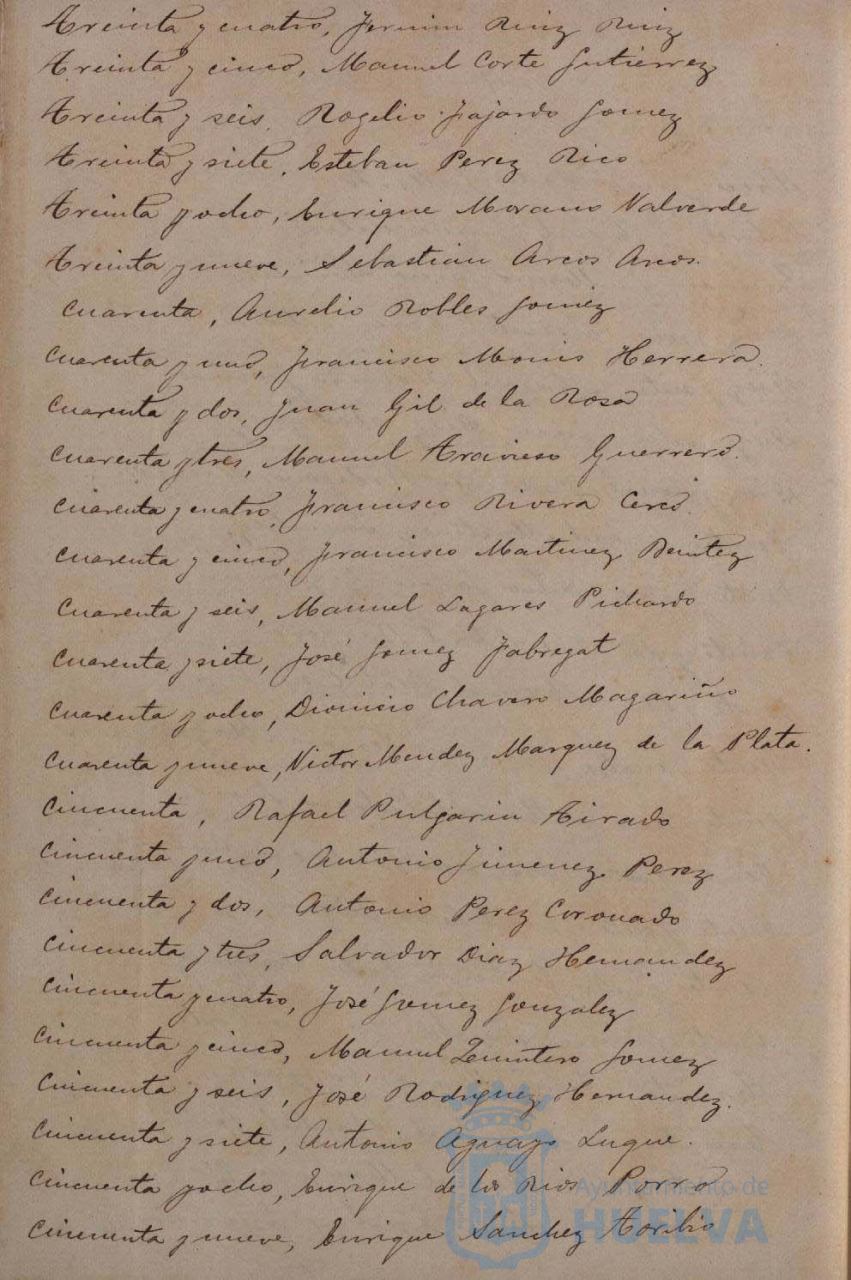 Treinta y cuatro, Fermin Ruiz Ruiz
Treinta y cinco, Manuel Corte Gutierrez
Treinta y seis, Rogelio Fajardo Gomez
Treinta y siete, Esteban Perez Rico
Treinta y ocho, Enrique Morano Valverde
Treinta y nueve, Sebastian Arcos Arcos.
Cuarenta, Aurelio Robles Gomez
Cuarenta y uno, Francisco Monis Herrera.
Cuarenta y dos, Juan Gil de la Rosa
Cuarenta y tres, Manuel Travieso Guerrero.
Cuarenta y cuatro, Francisco Rivera
Cuarenta y cinco, Francisco Martinez Benitez
Cuarenta y seis, Manuel Lagares Pichardo
Cuarenta y siete, José Gomez Fabregat
Cuarenta y ocho, Dionisio Chavero Magariño
Cuarenta y nueve, Victor Mendez Marquez de la Plata.
Cincuenta, Rafael Pulgarin Tirado
Cincuenta y uno, Antonio Jimenez Perez
Cincuenta y dos, Antonio Perez Coronado
Cincuenta y tres, Salvador Diaz Hernandez
Cincuenta y cuatro, José Gomez Gonzalez
Cincuenta y cinco, Manuel Quintero Gomez
Cincuenta y seis, José Rodriguez Hernandez.
Cincuenta y siete, Antonio Aguayo Luque.
Cincuenta y ocho, Enrique de los Rios Porro
Cincuenta y nueve, Enrique Sanchez Toribio
Ayuntamiento de
HUELVA